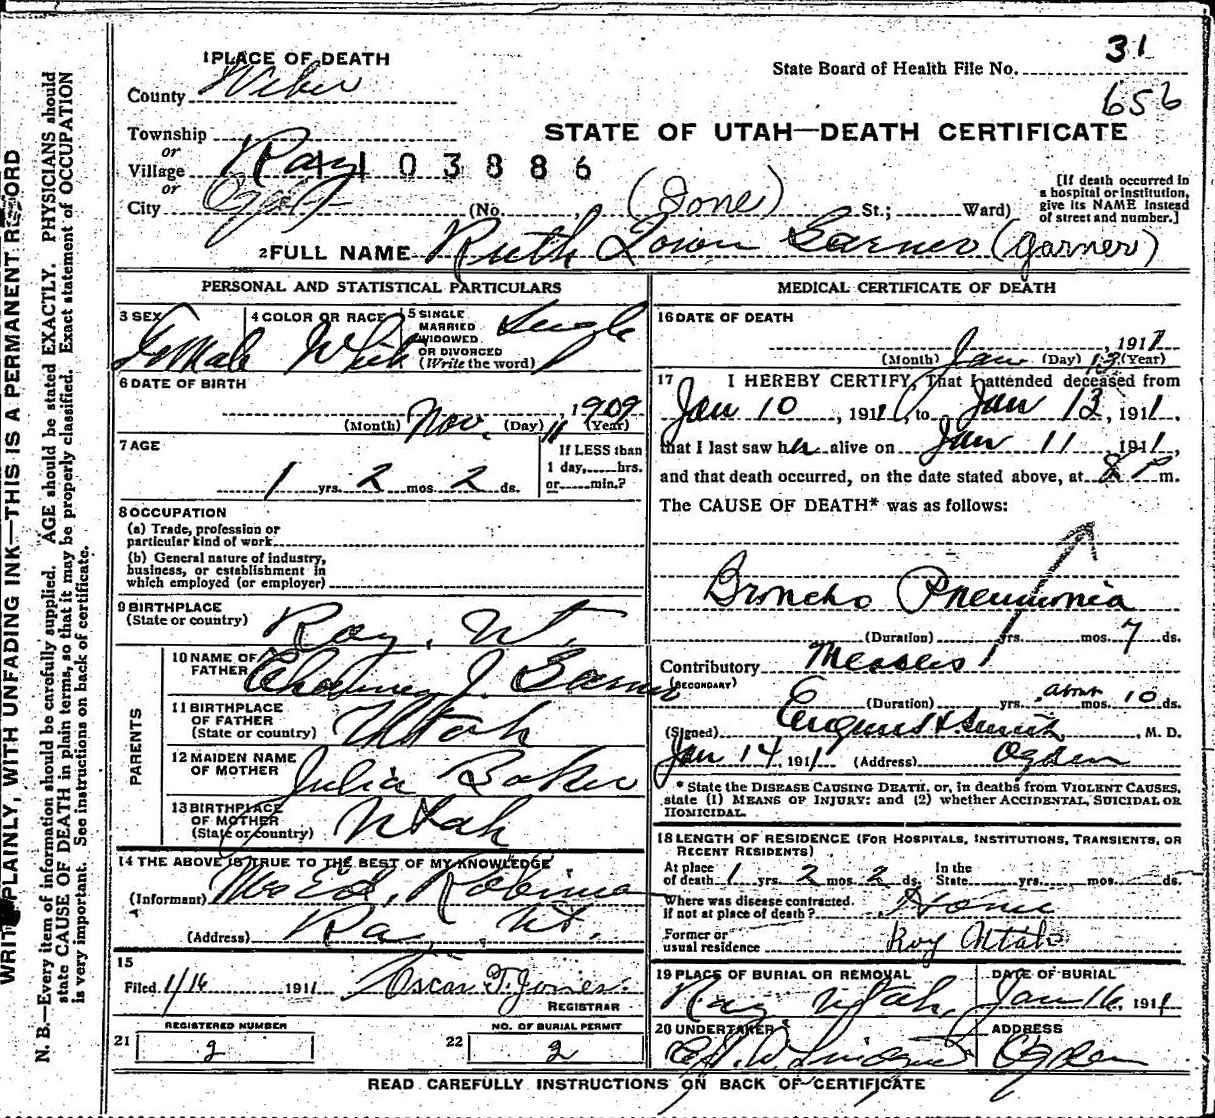 31
1 PLACE OF DEATH
State Board of Health File No.
County Weber
656
STATE OF UTAH—DEATH CERTIFICATE
Township
or
Village Roy 1103886
or
City
(No. (Ione) St.; Ward)
[If death occurred in a hospital or institution, give its NAME instead of street and number.]
2 FULL NAME Ruth Garner (Garner)
PERSONAL AND STATISTICAL PARTICULARS
3 SEX Female
4 COLOR OR RACE White
5 SINGLE MARRIED WIDOWED OR DIVORCED (Write the word) Single
6 DATE OF BIRTH
(Month) Nov. (Day) 11 1909 (Year)
7 AGE
1 yrs. 2 mos. 2 ds.
If LESS than 1 day, hrs. or min.?
8 OCCUPATION
(a) Trade, profession or particular kind of work
(b) General nature of industry, business, or establishment in which employed (or employer)
9 BIRTHPLACE (State or country) Roy, Ut.
PARENTS
10 NAME OF FATHER J. Garner
11 BIRTHPLACE OF FATHER (State or country) Utah
12 MAIDEN NAME OF MOTHER Julia Baker
13 BIRTHPLACE OF MOTHER (State or country) Utah
14 THE ABOVE IS TRUE TO THE BEST OF MY KNOWLEDGE
(Informant) Mrs Ed. Robinson
(Address) Roy, Ut.
15
Filed 1/16 1911 Oscar T. Jones.
REGISTRAR
REGISTERED NUMBER
21 2
NO. OF BURIAL PERMIT
22 2
MEDICAL CERTIFICATE OF DEATH
16 DATE OF DEATH
(Month) Jan (Day) 13, 1911 (Year)
17 I HEREBY CERTIFY, That I attended deceased from
Jan 10, 1911, to Jan 13, 1911,
that I last saw her alive on Jan 11 1911,
and that death occurred, on the date stated above, at 8 P m.
The CAUSE OF DEATH* was as follows:
Broncho Pneumonia
(Duration) yrs. mos. 7 ds.
Contributory Measles
(SECONDARY)
(Duration) yrs. mos. about 10 ds.
(Signed) H. Smith, M. D.
Jan 14, 1911 (Address) Ogden
* State the DISEASE CAUSING DEATH, or, in deaths from VIOLENT CAUSES, state (1) MEANS OF INJURY; and (2) whether ACCIDENTAL, SUICIDAL OR HOMICIDAL.
18 LENGTH OF RESIDENCE (FOR HOSPITALS, INSTITUTIONS, TRANSIENTS, OR RECENT RESIDENTS)
At place of death 1 yrs. 2 mos. 2 ds. In the State yrs. mos. ds.
Where was disease contracted, if not at place of death? Home
Former or usual residence Roy Utah
19 PLACE OF BURIAL OR REMOVAL Roy Utah,
DATE OF BURIAL Jan 16, 1911
20 UNDERTAKER
ADDRESS Ogden
READ CAREFULLY INSTRUCTIONS ON BACK OF CERTIFICATE
WRITE PLAINLY, WITH UNFADING INK—THIS IS A PERMANENT RECORD
N. B.—Every item of information should be carefully supplied. AGE should be stated EXACTLY. PHYSICIANS should
state CAUSE OF DEATH in plain terms, so that it may be properly classified. Exact statement of OCCUPATION
is very important. See instructions on back of certificate.